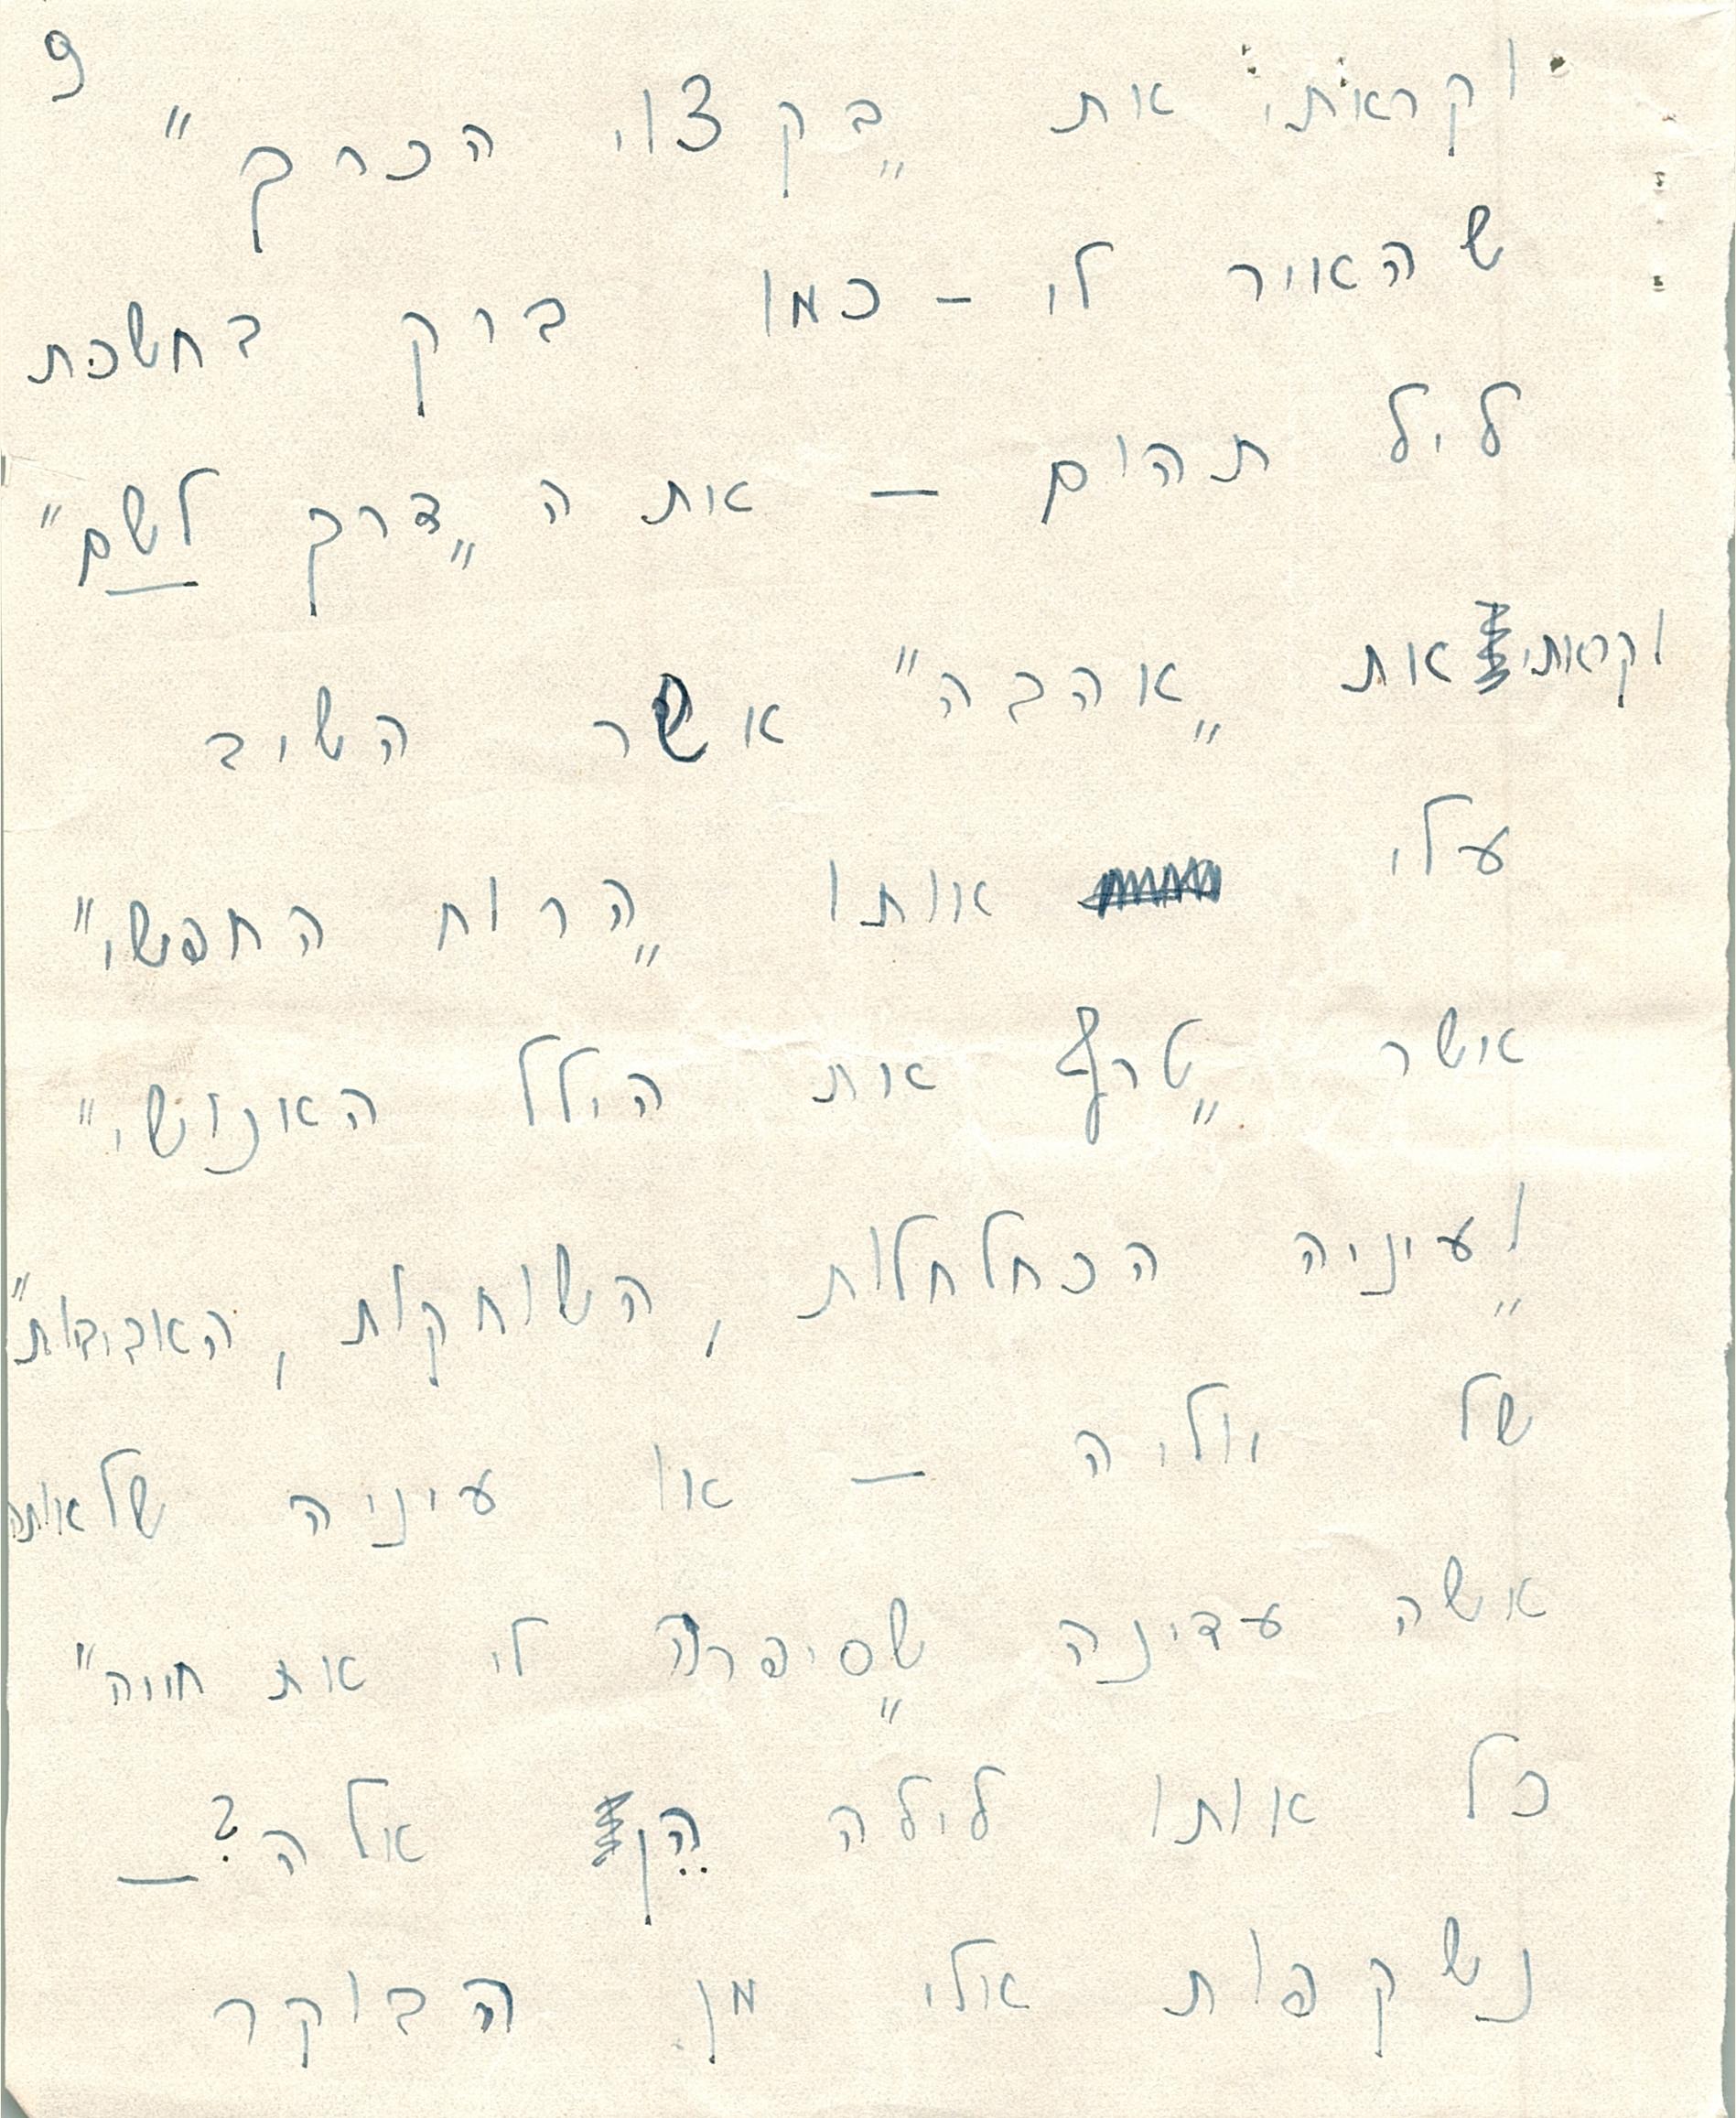 9
וקראתי את „בקצוי הכרך"
שהאיר לי – כמו ברק בחשכת
ליל תהום – את ה„דרך לשם"
וקראתי את „אהבה" אשר השיב
עלי אותו „הרוח החפשי"
אשר „טרף את הילל האנושי"
„ועיניה הכחלחלות, השוחקות, האביביות"
של יוליה – או עיניה של אותה
אשה עדינה „שסיפרה לי את חווה"
כל אותו לילה הֵן אלה? –
נשקפות אלי מן הבוקר